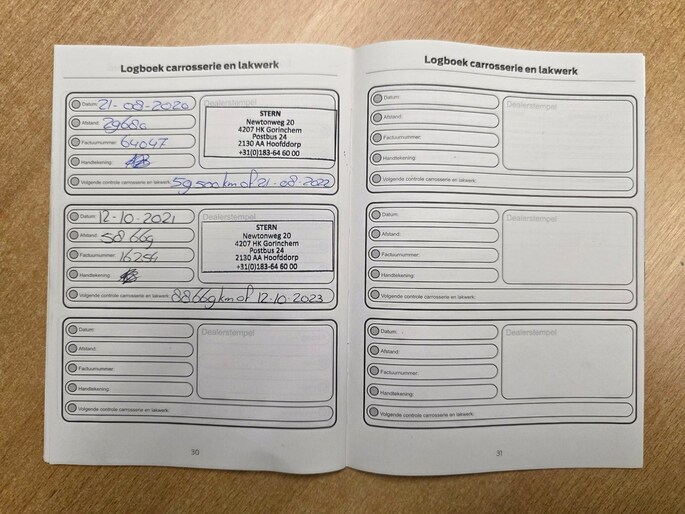 Logboek carrosserie en lakwerk
Datum: 21-08-2020
Dealerstempel
Afstand: 29680
Factuurnummer: 64047
Handtekening:
STERN
Newtonweg 20
4207 HK Gorinchem
Postbus 24
2130 AA Hoofddorp
+31(0)183-64 60 00
Volgende controle carrosserie en lakwerk: 59500km of 21-08-2022
Datum: 12-10-2021
Dealerstempel
Afstand: 58669
Factuurnummer: 16254
Handtekening:
STERN
Newtonweg 20
4207 HK Gorinchem
Postbus 24
2130 AA Hoofddorp
+31(0)183-64 60 00
Volgende controle carrosserie en lakwerk: 88669km of 12-10-2023
Datum:
Dealerstempel
Afstand:
Factuurnummer:
Handtekening:
Volgende controle carrosserie en lakwerk:
30
Logboek carrosserie en lakwerk
Datum:
Dealerstempel
Afstand:
Factuurnummer:
Handtekening:
Volgende controle carrosserie en lakwerk:
Datum:
Dealerstempel
Afstand:
Factuurnummer:
Handtekening:
Volgende controle carrosserie en lakwerk:
Datum:
Dealerstempel
Afstand:
Factuurnummer:
Handtekening:
Volgende controle carrosserie en lakwerk:
31